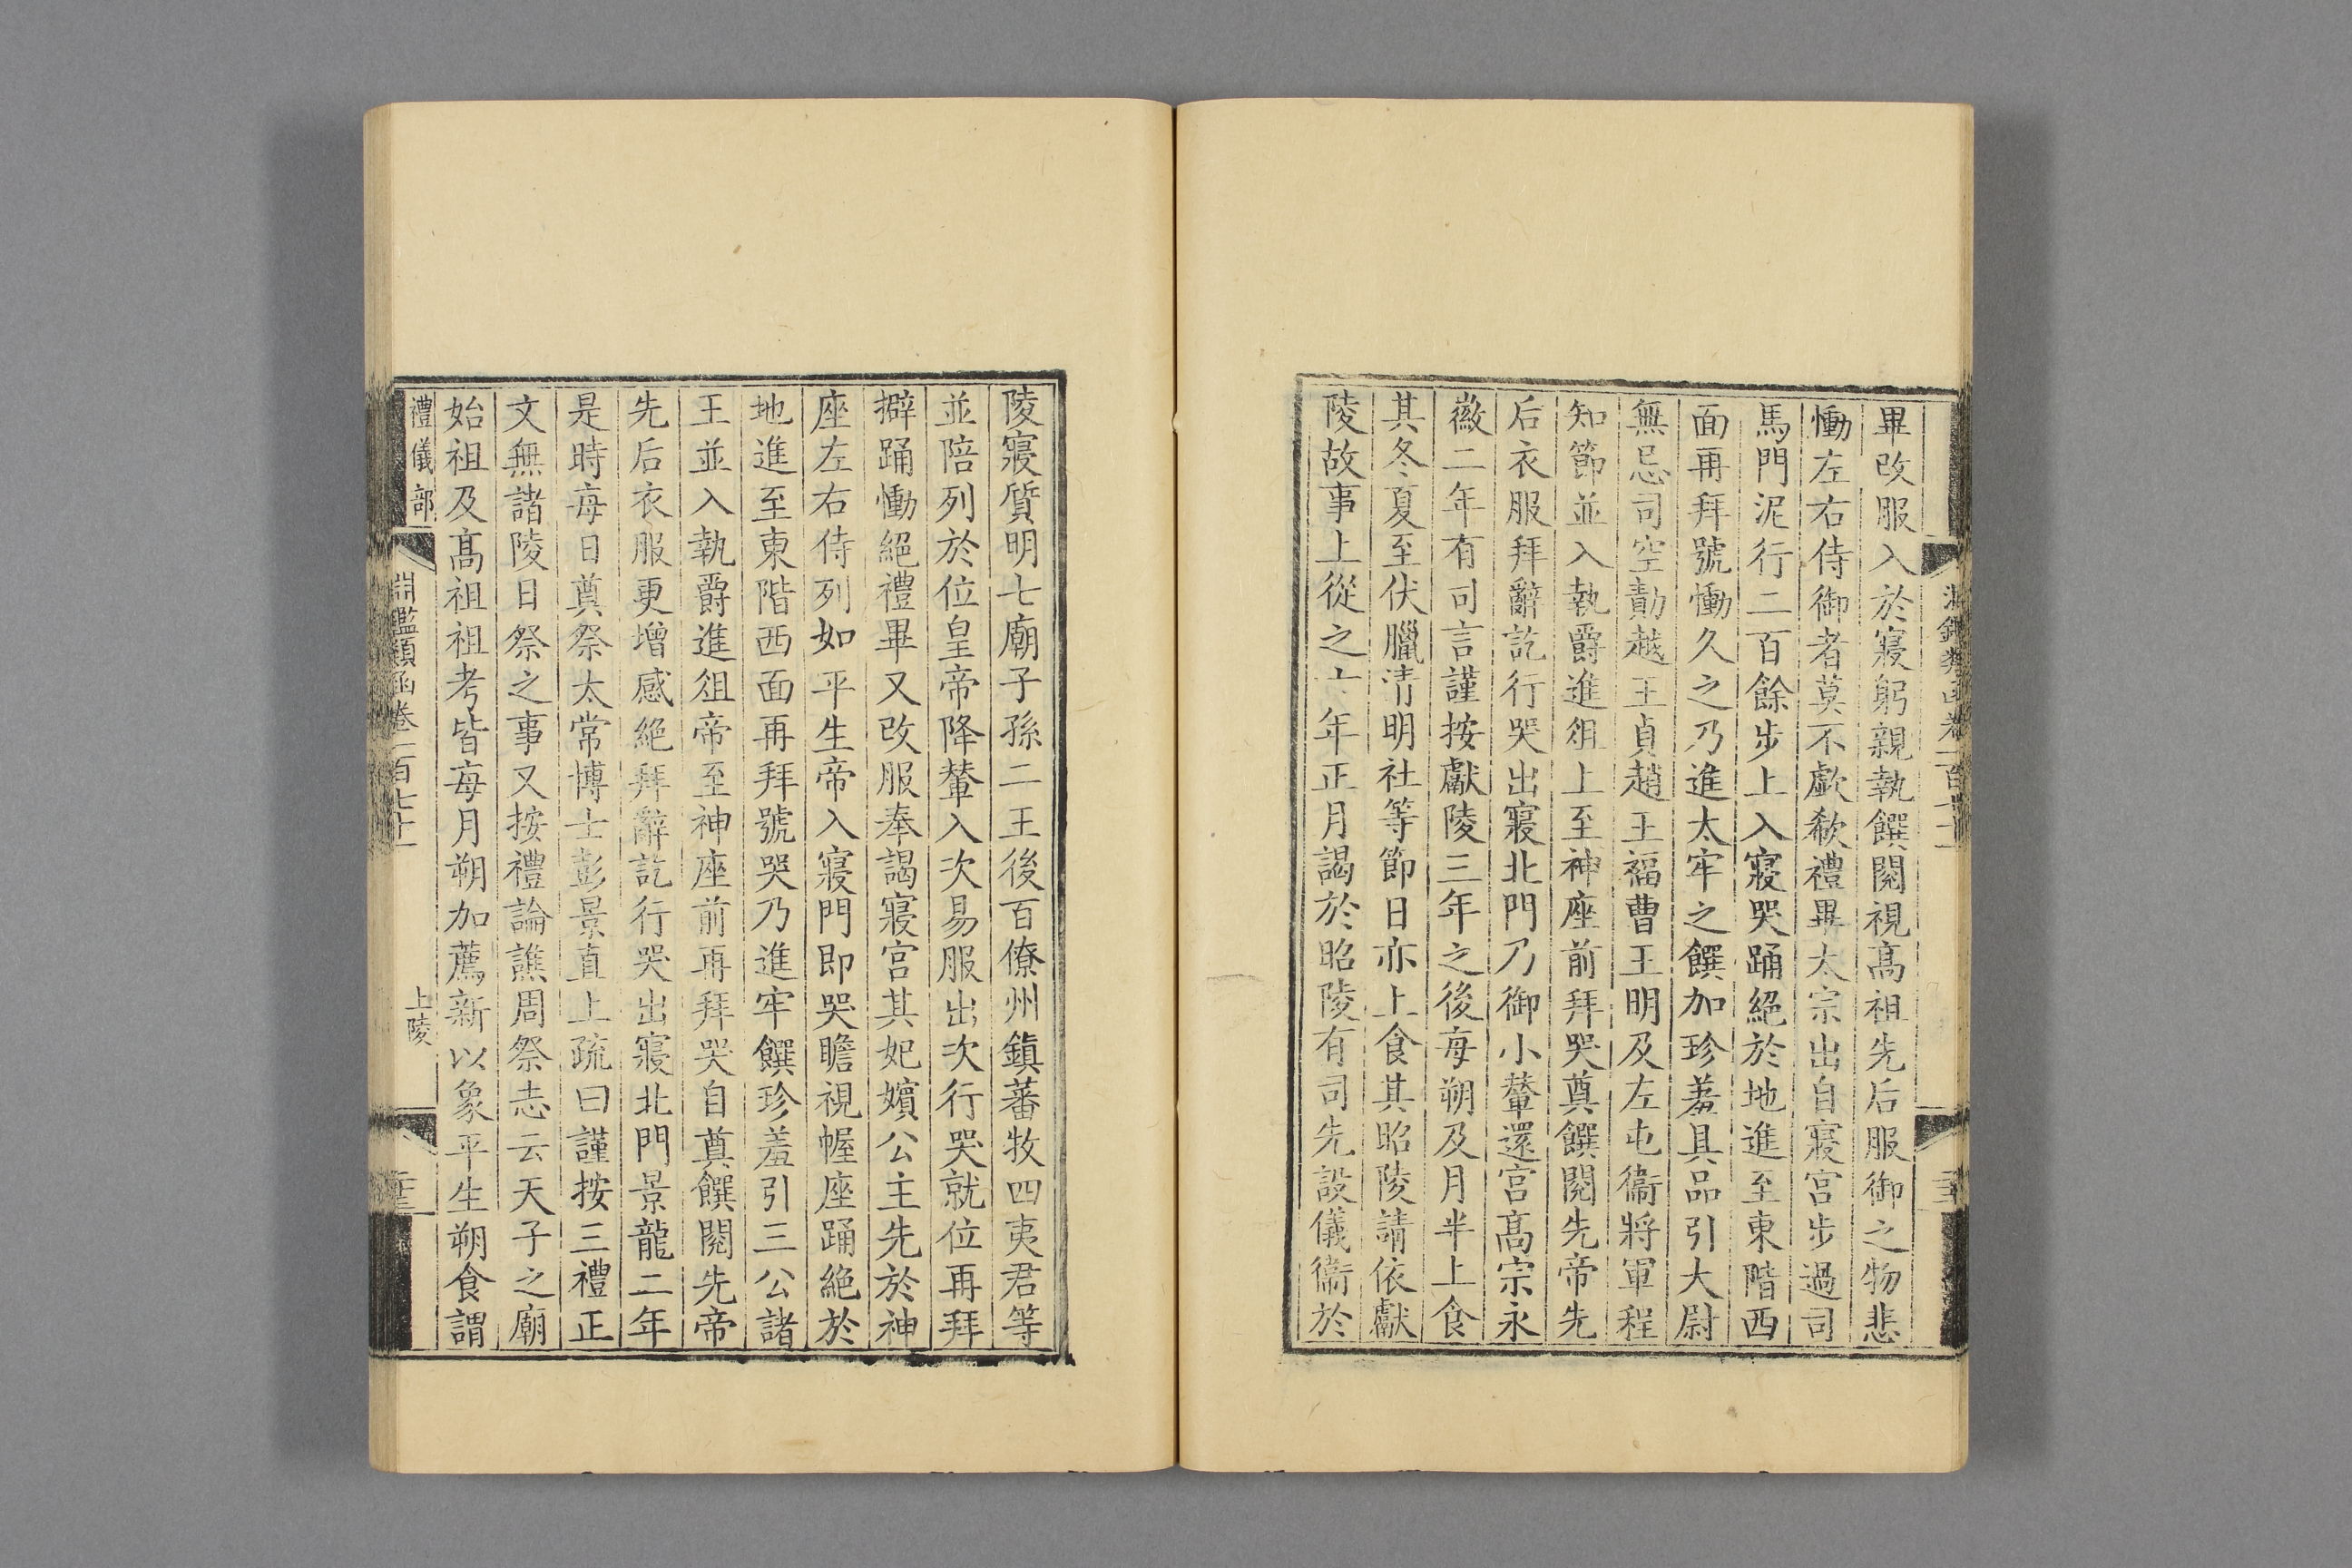 畢改服入於寢躬親執饌閱視髙祖先后服御之物悲
慟左右侍御者莫不歔欷禮畢太宗出自寢宮步過司
馬門泥行二百餘步上入寢哭踊絕於地進至東階西
面再拜號慟久之乃進太牢之饌加珍羞具品引大尉
無忌司空勣越王貞趙王福曹王明及左屯衞將軍程
知節並入執爵進俎上至神座前拜哭奠饌閱先帝先
后衣服拜辭訖行哭出寢北門乃御小輦還宮髙宗永
徽二年有司言謹按獻陵三年之後每朔及月半上食
其冬夏至伏臘清明社等節日亦上食其昭陵請依獻
陵故事上從之 年正月謁於昭陵有司先設儀衞於
陵寢質明七廟子孫二王後百僚州鎮蕃牧四夷君等
並陪列於位皇帝降輦入次易服出次行哭就位再拜
擗踊慟絕禮畢又改服奉謁寢宮其妃嬪公主先於神
座左右侍列如平生帝入寢門即哭瞻視幄座踊絕於
地進至東階西面再拜號哭乃進牢饌珍羞引三公諸
王並入執爵進俎帝至神座前再拜哭自奠饌閱先帝
先后衣服更增感絕拜辭訖行哭出寢北門景龍二年
是時每日奠祭太常博士彭景直上疏曰謹按三禮正
文無諸陵日祭之事又按禮論譙周祭志云天子之廟
始祖及髙祖祖考皆每月朔加薦新以象平生朔食謂
禮儀部
淵鑑類函卷一百七十
上陵